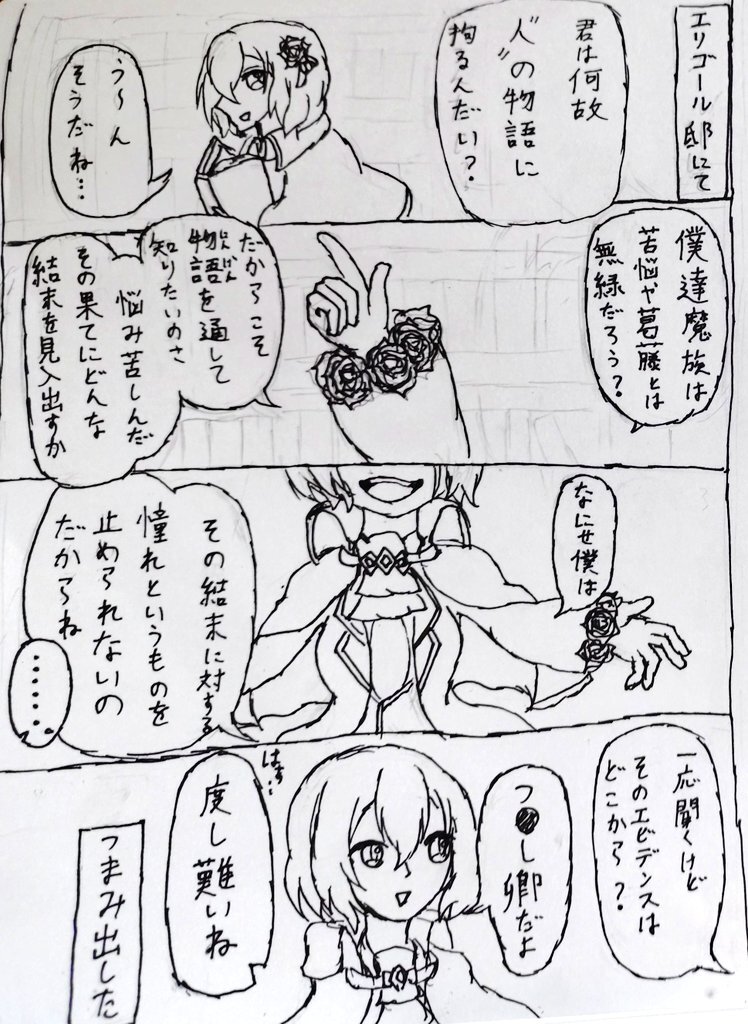 エリゴール邸にて
君は何故
"人"の物語に
拘るんだい?
う~ん
そうだね…
僕達魔族は
苦悩や葛藤とは
無縁だろう?
だからこそ
物語を通して
にんげん
知りたいのさ
悩み苦しんだ
その果てにどんな
結末を見入出すか
なにせ僕は
その結末に対する
憧れというものを
止められないの
だからね
……
一応聞くけど
そのエビデンスは
どこから?
つ●し卿だよ
はぁ…
度し難いね
つまみ出した